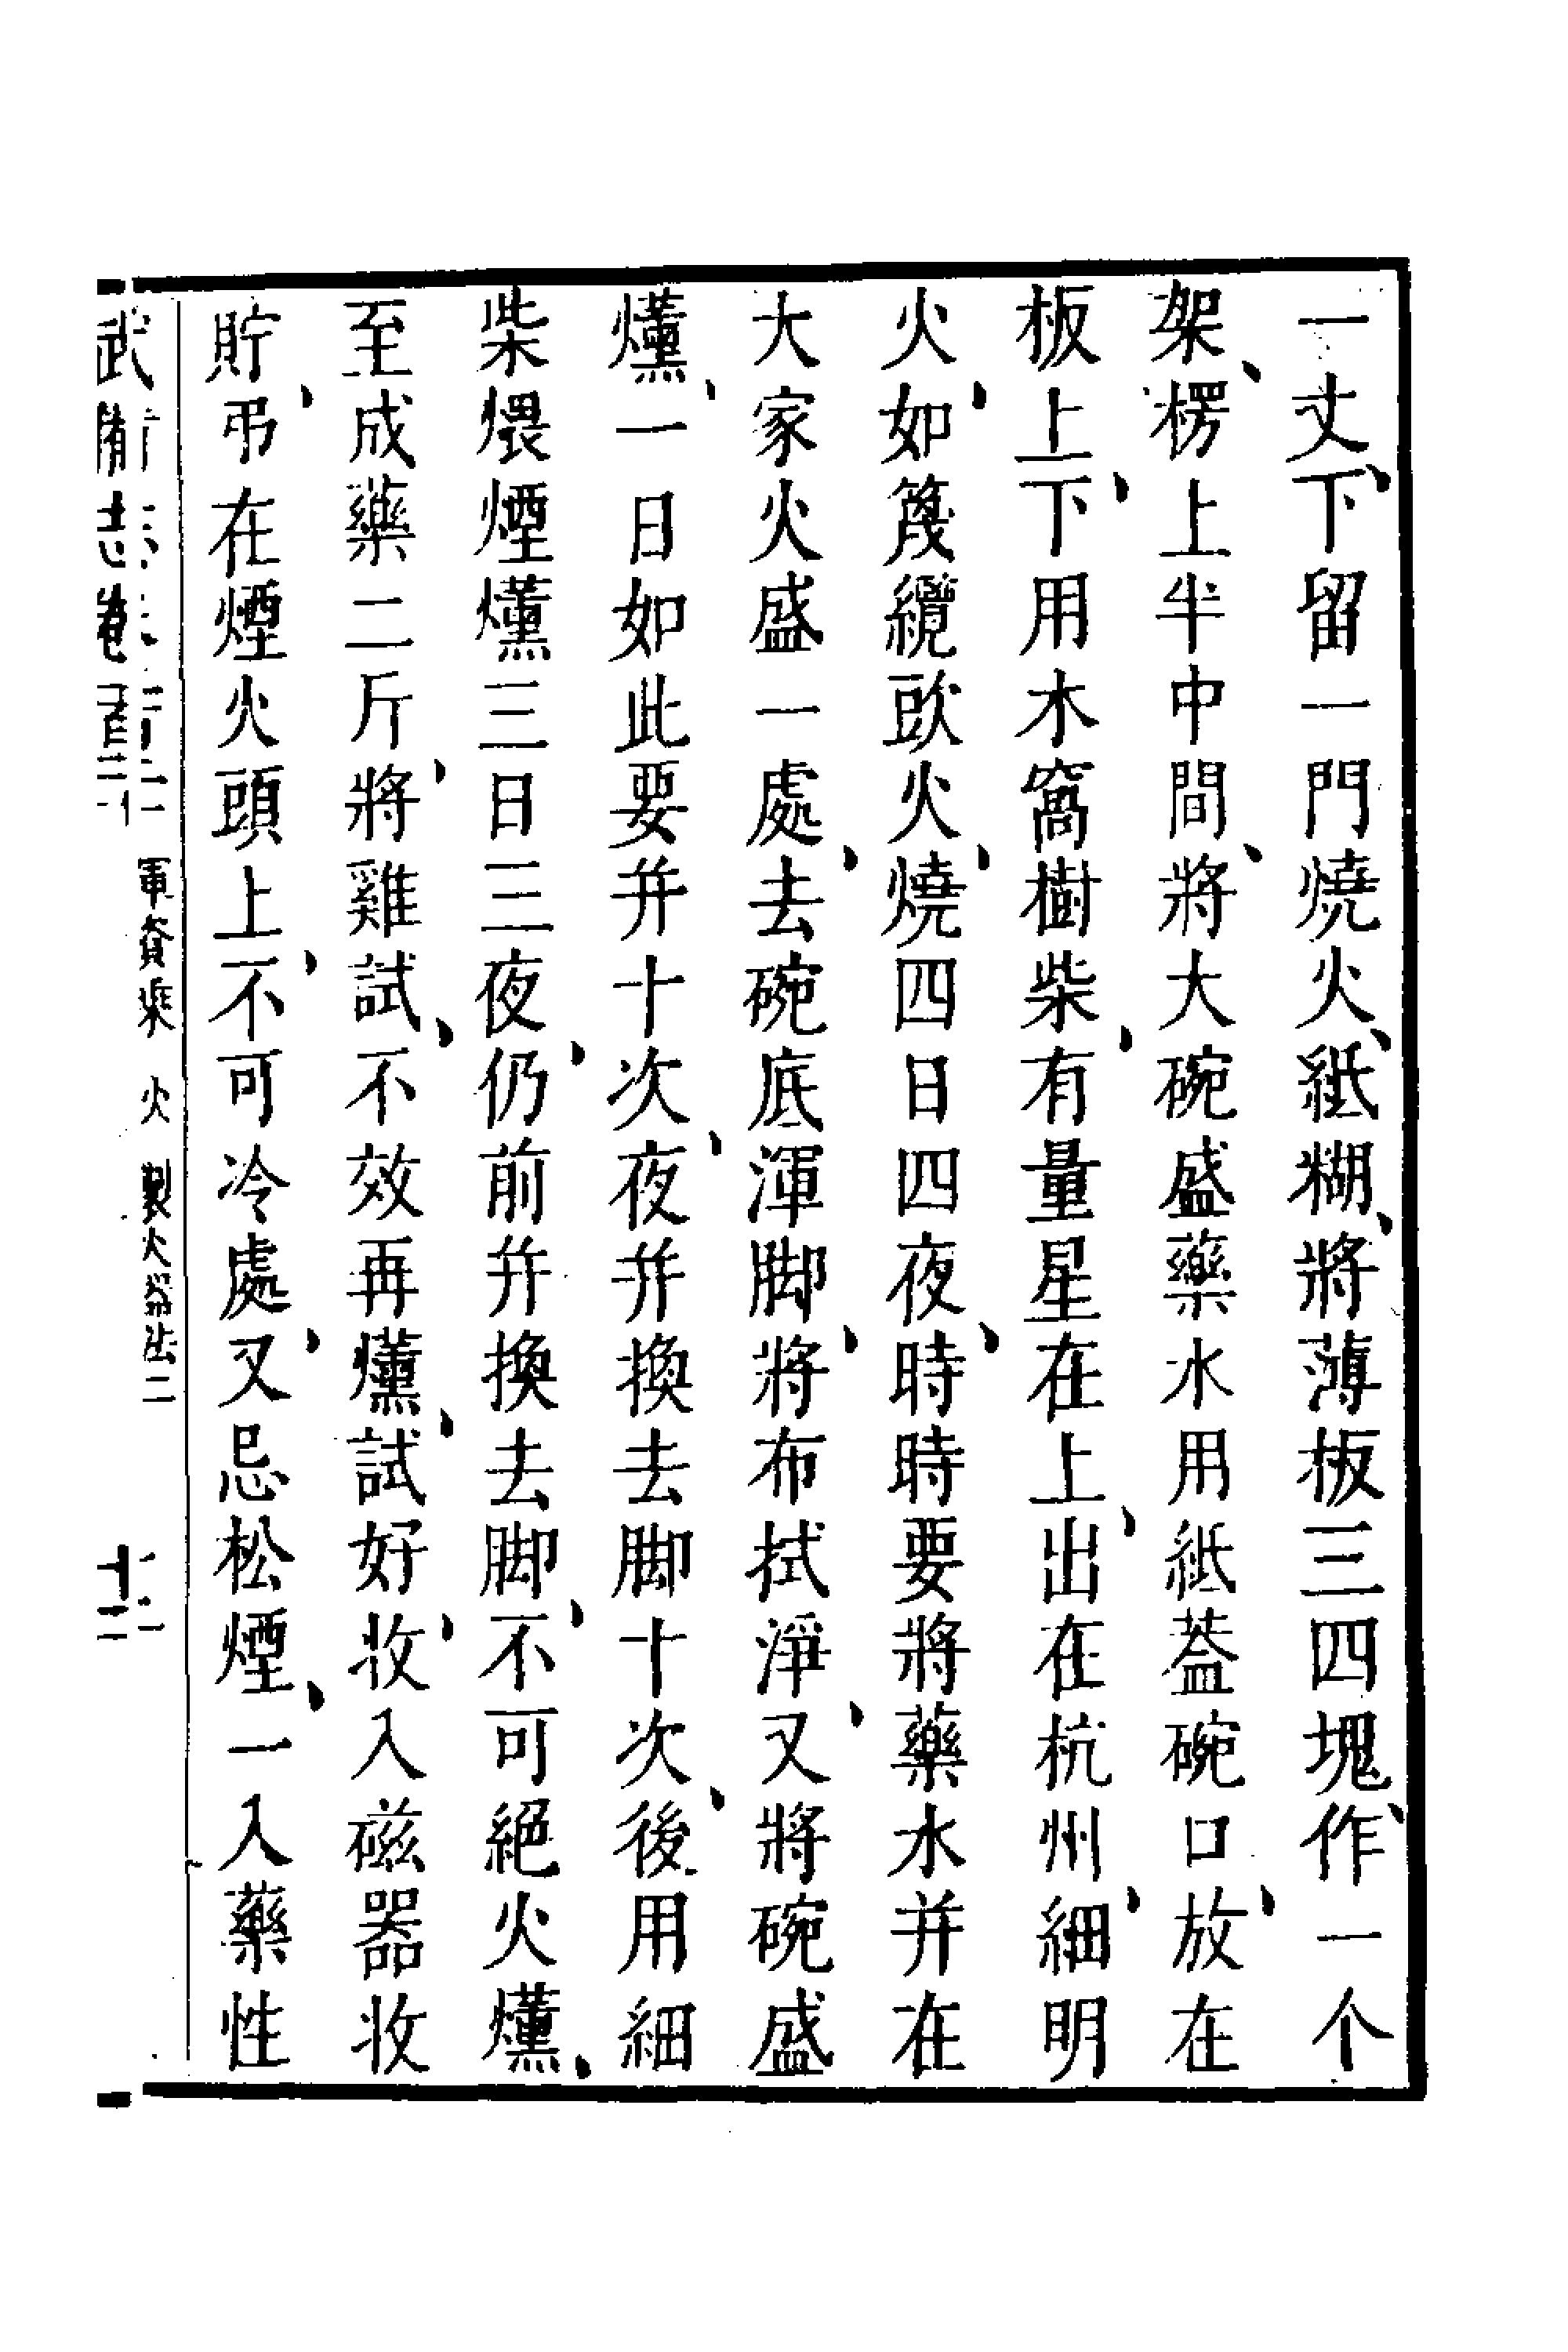 一丈下留一門燒火紙糊將薄板三四塊作一个
架楞上半中間將大碗盛藥水用紙葢碗口放在
板上下用木窩樹柴有量星在上出在杭州細明
火如篾纜頭火燒四日四夜時時要將藥水并在
大家火盛一處去碗底渾脚將布拭淨又將碗盛
爋一日如此要并十次夜并換去脚十次後用細
柴煨煙爋三日三夜仍前并換去脚不可絕火爋
至成藥二斤將雞試不效再爋試好收入磁器收
貯弔在煙火頭上不可冷處又忌松煙一入藥性
武備志卷 軍資乘 火 製火器法二 十二